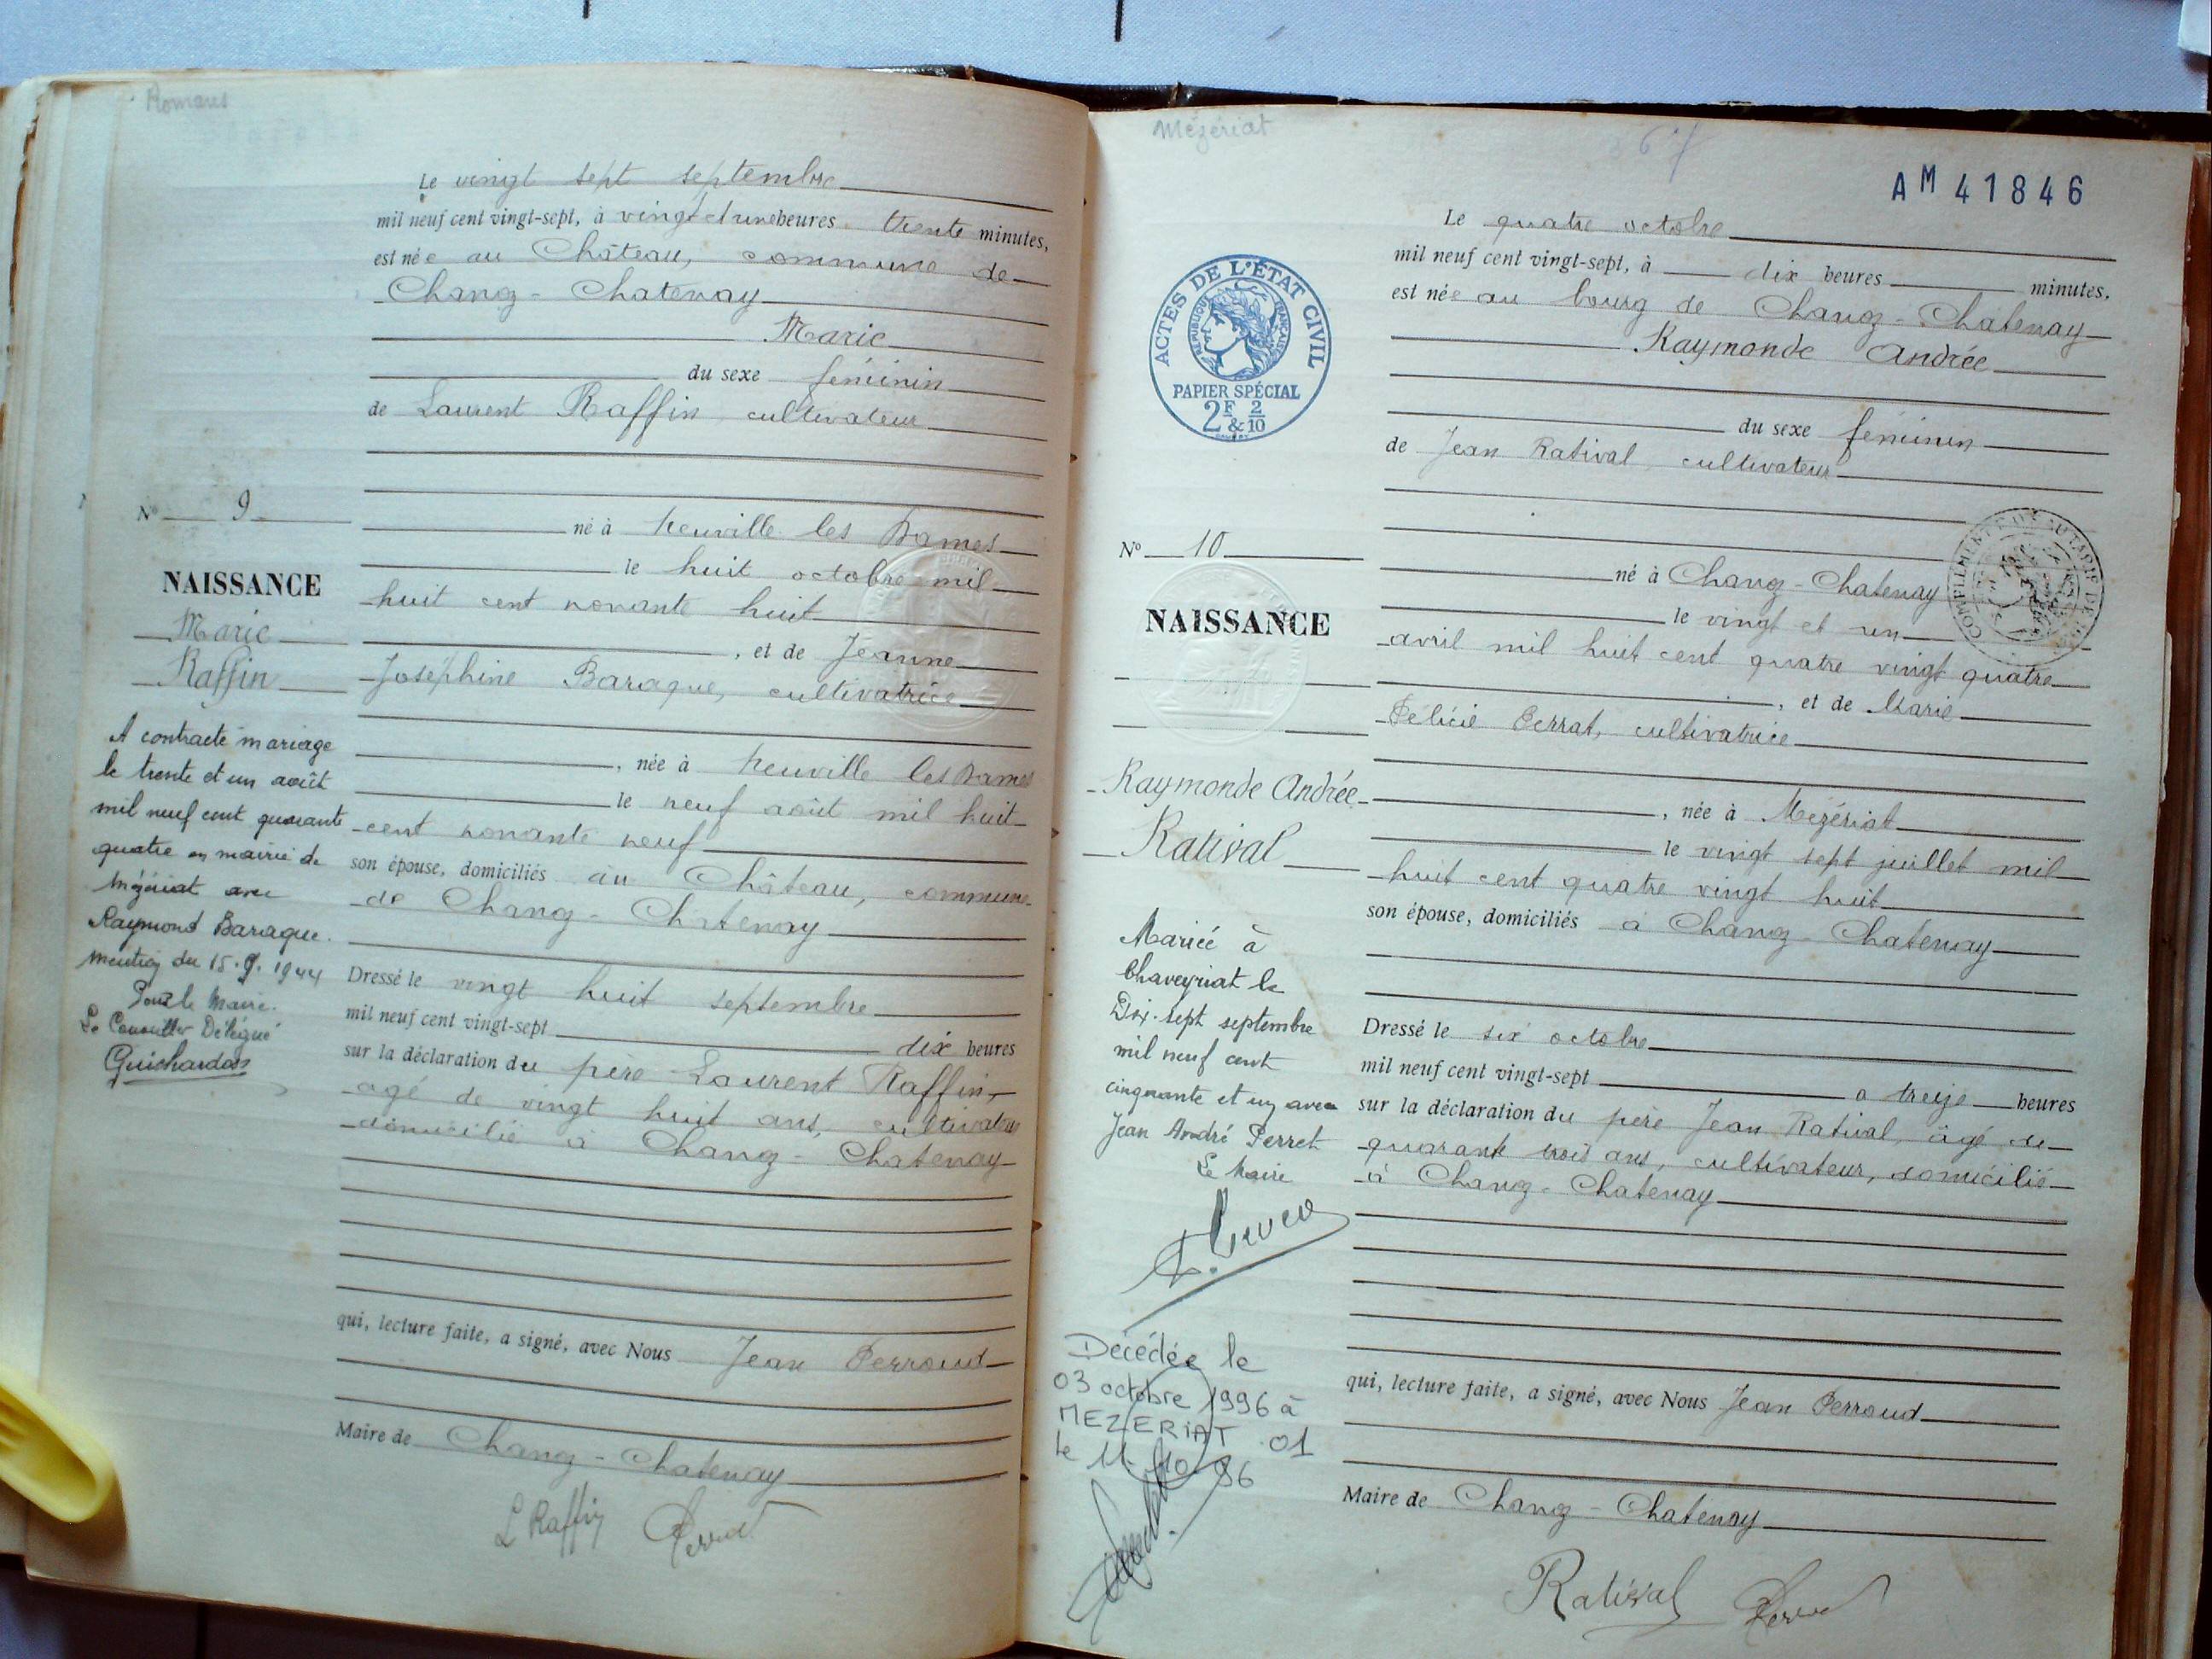 Romans
Le vingt sept septembre
mil neuf cent vingt-sept, à vingt et une heures trente minutes,
est née au Château, commune de
Chanoz-Chatenay
Marie
du sexe féminin
de Laurent Raffin cultivateur
né à Neuville les Dames
le huit octobre mil
huit cent nonante huit
, et de Jeanne
Joséphine Baraque, cultivatrice
, née à Neuville les Dames
le neuf août mil huit
cent nonante neuf
son épouse, domiciliés au Château, commune
de Chanoz-Chatenay
Dressé le vingt huit septembre
mil neuf cent vingt-sept dix heures
sur la déclaration du père Laurent Raffin,
agé de vingt huit ans, cultivateur
domicilié à Chanoz-Chatenay
qui, lecture faite, a signé, avec Nous Jean Perroud
Maire de Chanoz-Chatenay
L Raffin
N° 9
NAISSANCE
Marie
Raffin
A contracté mariage
le trente et un août
mil neuf cent quarante
quatre en mairie de
Mézériat avec
Raymond Baraque.
mention du 15.9.1944
Pour le Maire.
Le Conseiller Délégué
Guichardon
Mézériat
367
AM 41846
ACTES DE L'ÉTAT CIVIL
RÉPUBLIQUE FRANÇAISE
PAPIER SPÉCIAL
2F & 2/10
Le quatre octobre
mil neuf cent vingt-sept, à dix heures minutes,
est née au bourg de Chanoz-Chatenay
Raymonde Andrée
du sexe féminin
de Jean Ratival cultivateur
né à Chanoz-Chatenay
le vingt et un
avril mil huit cent quatre vingt quatre
, et de Marie
Félicie Perrat, cultivatrice
, née à Mézériat
le vingt sept juillet mil
huit cent quatre vingt huit
son épouse, domiciliés à Chanoz-Chatenay
Dressé le six octobre
mil neuf cent vingt-sept a treize heures
sur la déclaration du père Jean Ratival, âgé de
quarante trois ans, cultivateur, domicilié
à Chanoz-Chatenay
qui, lecture faite, a signé, avec Nous Jean Perroud
Maire de Chanoz-Chatenay
Ratival
N° 10
NAISSANCE
Raymonde Andrée
Ratival
Mariée à
Chaveyriat le
Dix-sept septembre
mil neuf cent
cinquante et un avec
Jean André Perret
Le Maire
Décédée le
03 octobre 1996 à
MEZERIAT 01
le 11.10.96